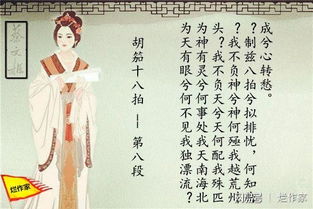 蔡文姬
胡笳十八拍 — 第八段
为天有眼兮何不见我独漂流？
为神有灵兮何事处我天南海北
头？我不负天兮天何配我殊匹
？我不负神兮神何殛我越荒州
？制兹八拍兮拟排忧，何知曲
成兮心转愁。
烂作家
烂作家